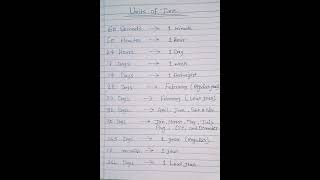 Units of Time
60 Seconds → 1 minute
60 Minutes → 1 Hour
24 Hours → 1 Day
7 Days → 1 week
Days → 1 Fortnight
28 Days → February (Regular year)
29 Days → February (Leap year)
30 Days → April, June, Sept & Nov
31 Days → Jan, March, May, July,
Aug, Oct, and December
365 Days → 1 year (Regular)
12 months → 1 year
366 Days → 1 Leap year